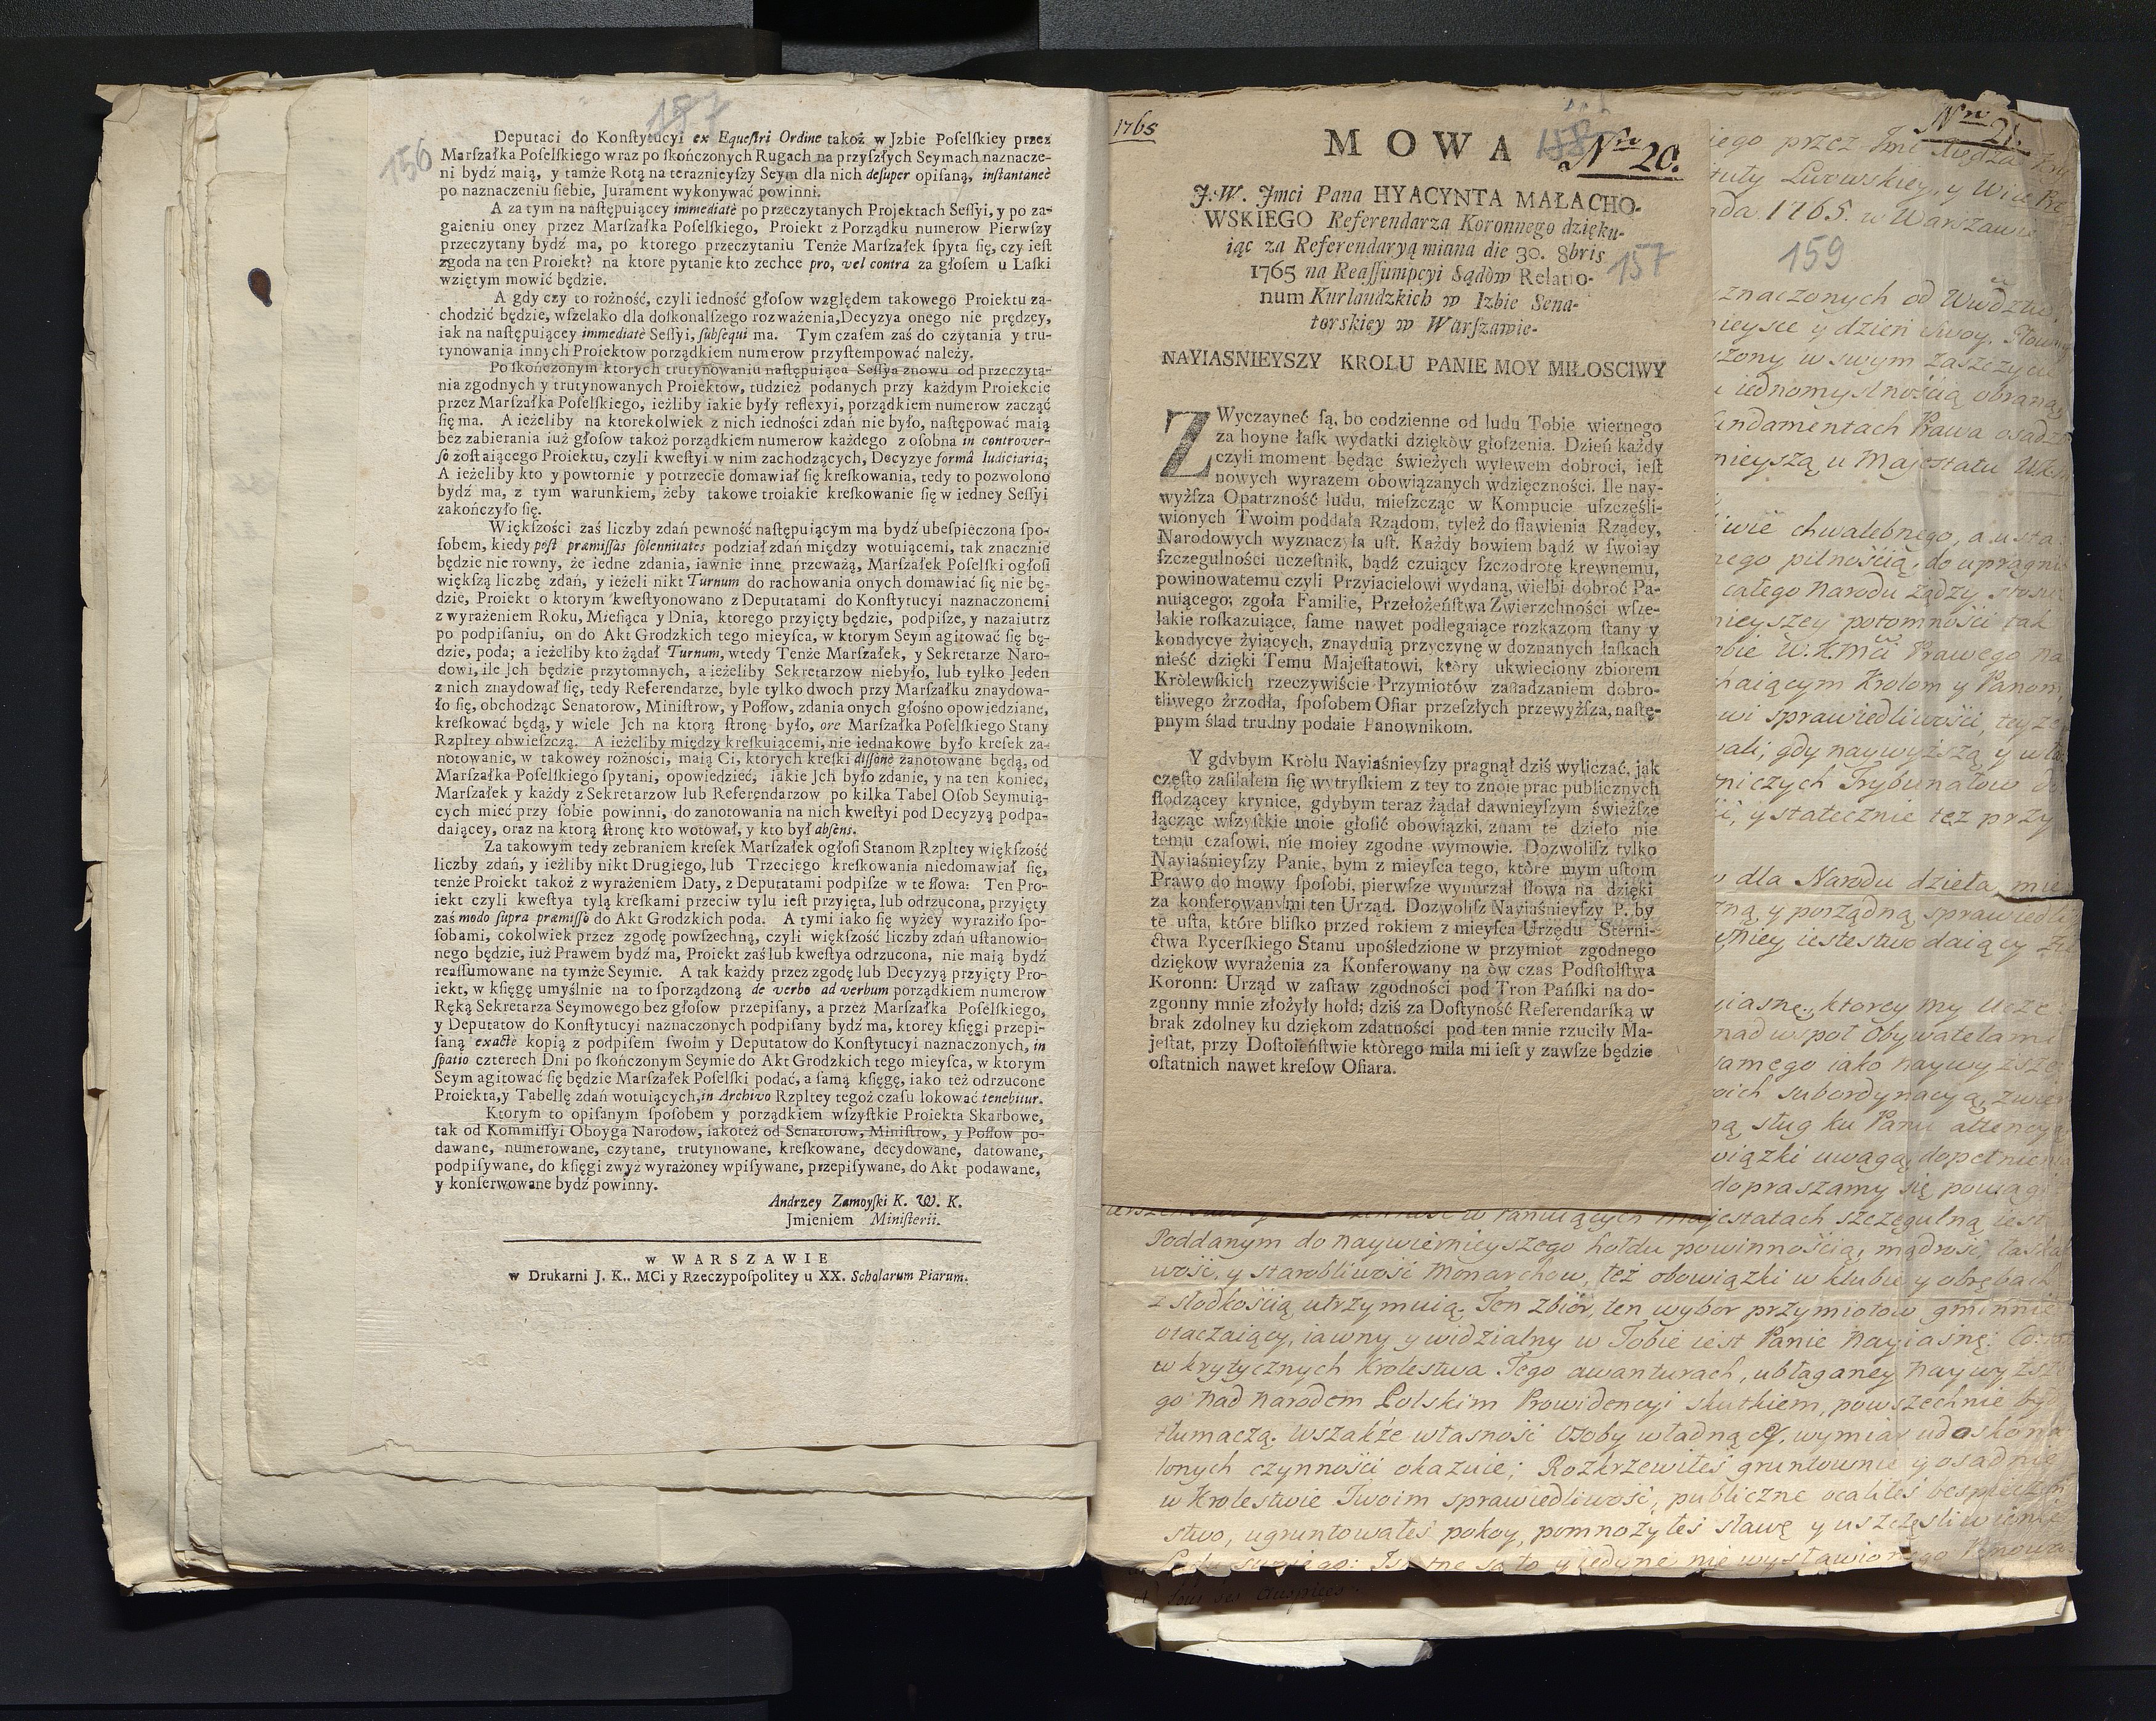 157
156
Deputaci do Konſtytucyi ex Equeſtri Ordine takoż w Jzbie Poſelſkiey przez
Marſzałka Poſelſkiego wraz po ſkończonych Rugach na przyſzłych Seymach naznacze-
ni bydź maią, y tamże Rotą na teraznieyſzy Seym dla nich deſuper opiſaną, inſtantaneè
po naznaczeniu ſiebie, Jurament wykonywać powinni.
A za tym na naſtępuiącey immediatè po przeczytanych Projektach Seſſyi, y po za-
gaieniu oney przez Marſzałka Poſelſkiego, Proiekt z Porządku numerow Pierwſzy
przeczytany bydź ma, po ktorego przeczytaniu Tenże Marſzałek ſpyta ſię, czy ieſt
zgoda na ten Proiekt? na ktore pytanie kto zechce pro, vel contra za głoſem u Laſki
wziętym mowić będzie.
A gdy czy to rożność, czyli iedność głoſow względem takowego Proiektu za-
chodzić będzie, wſzelako dla doſkonalſzego rozważenia,Decyzya onego nie prędzey,
iak na naſtępuiącey immediatè Seſſyi, ſubſequi ma. Tym czaſem zaś do czytania y tru-
tynowania innych Proiektow porządkiem numerow przyſtempować należy.
Po ſkończonym ktorych trutynowaniu naſtępuiąca Seſſya znowu od przeczyta-
nia zgodnych y trutynowanych Proiektow, tudzież podanych przy każdym Proiekcie
przez Marſzałka Poſelſkiego, ieżliby iakie były reflexyi, porządkiem numerow zacząć
ſię ma. A ieżeliby na ktorekolwiek z nich iedności zdań nie było, naſtępować maią
bez zabierania iuż głoſow takoż porządkiem numerow każdego z oſobna in controver-
ſo zoſtaiącego Proiektu, czyli kweſtyi w nim zachodzących, Decyzye formâ Iudiciaria;
A ieżeliby kto y powtornie y potrzecie domawiał ſię kreſkowania, tedy to pozwolono
bydź ma, z tym warunkiem, żeby takowe troiakie kreſkowanie ſię w iedney Seſſyi
zakończyło ſię.
Więkſzości zaś liczby zdań pewność naſtępuiącym ma bydź ubeſpieczona ſpo-
ſobem, kiedy poſt præmiſſas ſolennitates podział zdań między wotuiącemi, tak znacznie
będzie nie rowny, że iedne zdania, iawnie inne przeważą, Marſzałek Poſelſki ogłoſi
więkſzą liczbę zdań, y ieżeli nikt Turnum do rachowania onych domawiać ſię nie bę-
dzie, Proiekt o ktorym kweſtyonowano z Deputatami do Konſtytucyi naznaczonemi
z wyrażeniem Roku, Mieſiąca y Dnia, ktorego przyięty będzie, podpiſze, y nazaiutrz
po podpiſaniu, on do Akt Grodzkich tego mieyſca, w ktorym Seym agitować ſię bę-
dzie, poda; a ieżeliby kto żądał Turnum, wtedy Tenże Marſzałek, y Sekretarze Naro-
dowi, ile Jch będzie przytomnych, a ieżeliby Sekretarzow niebyło, lub tylko Jeden
z nich znaydował ſię, tedy Referendarze, byle tylko dwoch przy Marſzałku znaydowa-
ło ſię, obchodząc Senatorow, Miniſtrow, y Poſłow, zdania onych głośno opowiedziane,
kreſkować będą, y wiele Jch na ktorą ſtronę było, ore Marſzałka Poſelſkiego Stany
Rzpltey obwieſzczą. A ieżeliby między kreſkuiącemi, nie iednakowe było kreſek za-
notowanie, w takowey rożności, maią Ci, ktorych kreſki diſſonè zanotowane będą, od
Marſzałka Poſelſkiego ſpytani, opowiedzieć, iakie Jch było zdanie, y na ten koniec,
Marſzałek y każdy z Sekretarzow lub Referendarzow po kilka Tabel Oſob Seymuią-
cych mieć przy ſobie powinni, do zanotowania na nich kweſtyi pod Decyzyą podpa-
daiącey, oraz na ktorą ſtronę kto wotował, y kto był abſens.
Za takowym tedy zebraniem kreſek Marſzałek ogłoſi Stanom Rzpltey więkſzość
liczby zdań, y ieżliby nikt Drugiego, lub Trzeciego kreſkowania niedomawiał ſię,
tenże Proiekt takoż z wyrażeniem Daty, z Deputatami podpiſze w te ſłowa: Ten Pro-
iekt czyli kweſtya tylą kreſkami przeciw tylu ieſt przyięta, lub odrzucona, przyięty
zaś modo ſupra præmiſſo do Akt Grodzkich poda. A tymi iako ſię wyżey wyraziło ſpo-
ſobami, cokolwiek przez zgodę powſzechną, czyli więkſzość liczby zdań uſtanowio-
nego będzie, iuż Prawem bydź ma, Proiekt zaś lub kweſtya odrzucona, nie maią bydź
reaſſumowane na tymże Seymie. A tak każdy przez zgodę lub Decyzyą przyięty Pro-
iekt, w kſięgę umyślnie na to ſporządzoną de verbo ad verbum porządkiem numerow
Ręką Sekretarza Seymowego bez głoſow przepiſany, a przez Marſzałka Poſelſkiego,
y Deputatow do Konſtytucyi naznaczonych podpiſany bydź ma, ktorey kſięgi przepi-
ſaną exactè kopią z podpiſem ſwoim y Deputatow do Konſtytucyi naznaczonych, in
ſpatio czterech Dni po ſkończonym Seymie do Akt Grodzkich tego mieyſca, w ktorym
Seym agitować ſię będzie Marſzałek Poſelſki podać, a ſamą kſięgę, iako też odrzucone
Proiekta,y Tabellę zdań wotuiących,in Archivo Rzpltey tegoż czaſu lokować tenebitur.
Ktorym to opiſanym ſpoſobem y porządkiem wſzyſtkie Proiekta Skarbowe,
tak od Kommiſſyi Oboyga Narodow, iakoteż od Senatorow, Miniſtrow, y Poſłow po-
dawane, numerowane, czytane, trutynowane, kreſkowane, decydowane, datowane,
podpiſywane, do kſięgi zwyż wyrażoney wpiſywane, przepiſywane, do Akt podawane,
y konſerwowane bydź powinny.
Andrzey Zamoyſki K. W. K.
Jmieniem Miniſterii.
w WARSZAWIE
w Drukarni J. K. MCi y Rzeczypoſpolitey u XX. Scholarum Piarum.
1765
MOWA
158
Nro 20.
J. W. Jmci Pana HYACYNTA MAŁACHO-
WSKIEGO Referendarza Koronnego dzięku-
iąc za Referendaryą miana die 30. 8bris
1765 na Reaſſumpcyi Sądòw Relatio-
num Kurlandzkich w Izbie Sena-
torskiey w Warſzawie.
157
NAYIASNIEYSZY KROLU PANIE MOY MIŁOSCIWY
ZWyczayneć ſą, bo codzienne od ludu Tobie wiernego
za hoyne łaſk wydatki dziękòw głoſzenia. Dzień każdy
czyli moment będąc świeżych wylewem dobroci, ieſt
nowych wyrazem obowiązanych wdzięczności. Ile nay-
wyżſza Opatrzność ludu, mieſzcząc w Kompucie uſzczęśli-
wionych Twoim poddała Rządom, tyleż do ſławienia Rządcy,
Narodowych wyznaczyła uſt. Każdy bowiem bądź w ſwoiey
ſzczegulności uczeſtnik, bądź czuiący ſzczodrotę krewnemu,
powinowatemu czyli Przyiacielowi wydaną, wielbi dobroć Pa-
nuiącego; zgoła Familie, Przełożeńſtwa Zwierzchności wſze-
lakie roſkazuiące, ſame nawet podlegaiące rozkazom ſtany y
kondycye żyiących, znayduią przyczynę w doznanych łaſkach
nieść dzięki Temu Majeſtatowi, ktòry ukwiecony zbiorem
Kròlewſkich rzeczywiście Przymiotów zaſadzaniem dobro-
tliwego źrzodła, ſpoſobem Ofiar przeſzłych przewyżſza, naſtę-
pnym ślad trudny podaie Panownikom.
Y gdybym Kròlu Nayiaśnieyſzy pragnął dziś wyliczać, jak
często zaſilałem ſię wytryſkiem z tey to znoie prac publicznych
ſłodzącey krynice, gdybym teraz żądał dawnieyſzym świeżſze
łącząc wſzyſtkie moie głoſić obowiązki, znam te dzieło nie
temu czaſowi, nie moiey zgodne wymowie. Dozwoliſz tylko
Nayiaśnieyſzy Panie, bym z mieyſca tego, ktòre mym uſtom
Prawo do mowy ſpoſobi, pierwſze wynurzał ſłowa na dzięki
za konferowany mi ten Urząd. Dozwoliſz Nayiaśnieyſzy P. by
te uſta, ktòre bliſko przed rokiem z mieyſca Urzędu Sterni-
ctwa Rycerſkiego Stanu upośledzione w przymiot zgodnego
dziękow wyrażenia za Konferowany na òw czas Podſtolſtwa
Koronn: Urząd w zaſtaw zgodności pod Tron Pańſki na do-
zgonny mnie złożyły hołd; dziś za Doſtyność Referendarſką w
brak zdolney ku dziękom zdatności pod ten mnie rzuciły Ma-
jeſtat, przy Doſtoieńſtwie ktòrego miła mi ieſt y zawſze będzie
oſtatnich nawet kreſow Ofiara.
Nro 21.
iego przez Jmci Xiędza
tuły Lwowskiey, y Wice
ada 1765. w Warszawie
159
znaczonych od Wwdztw,
ieysce y dzien swoy.
żony w swym zaszczycie
iednomyslnością obraną
undamentach Prawa
nieyszą u Majestatu
iwie chwalebnego, a
nego pilnością, do
całego Narodu żądzy
nieyszey potomności tak
obie W. K. Mci Prawego na
haiącym Krolom y Panom,
wi sprawiedliwości,
ali; gdy naywyższą y
niczych Trybunałow
y statecznie też przy
dla Narodu dzieła
zną, y porządną,
niey iestestwo daiący
iasne, ktorey my
nad wspoł Obywatelami
samego iako naywyższe
oich subordynacyą,
ną sług ku Panu attencyą
wiązki uwagą,
dopraszamy się
w Panuiących Majestatach szczegulną iest
Poddanym do naywiernieyszego hołdu powinnością, mądrość, łaska
wość, y starobliwość Monarchow, też obowiązki w klubie y obrębach
z słodkością utrzymuią. Ten zbiór, ten wybor przymiotow gminnie
otaczaiący, iawny y widzialny w Tobie iest Panie Nayiasne:
w krytycznych Krolestwa Tego awanturach, ubłaganey naywyższe
go nad narodem Polskim Prowidencyi skutkiem, powszechnie
tłumaczą. Wszakże własność Osoby władnącey, wymiar udoskona
lonych czynności okazuie; Rozkrzewiłeś gruntownie y osadnie
w Krolestwie Twoim sprawiedliwość, publiczne ocaliłeś bespieczeń
stwo, ugruntowałeś pokoy, pomnożyłeś sławę y uszczęsliwienie